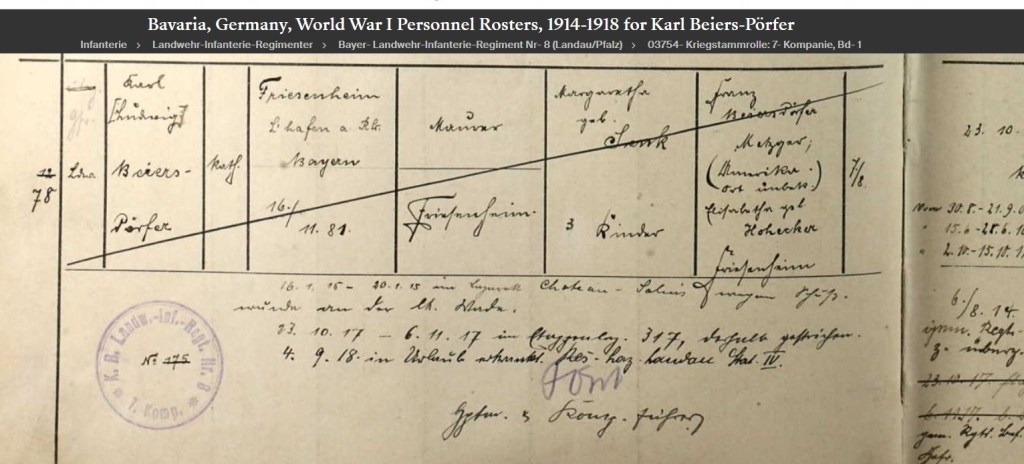 Bavaria, Germany, World War I Personnel Rosters, 1914-1918 for Karl Beiers-Pörfer
Infanterie > Landwehr-Infanterie-Regimenter > Bayer- Landwehr-Infanterie-Regiment Nr- 8 (Landau/Pfalz) > 03754- Kriegstammrolle: 7- Kompanie, Bd- 1
78
Karl
[Ludwig]
Beiers-
Pörfer
kath.
Friesenheim
L'hafen a. Rh.
Bayern
16./
11. 81.
Maurer
Friesenheim.
Margaretha
geb.
Senk
3 Kinder
Franz
Beiersdörfer
Metzger,
(Amerika.
Ort unbek.)
Elisabetha geb
Hohecker
Friesenheim
7/8.
23. 10.
vom 30.8.-21.9.
15.6
2.10.-15.10.
16. 1. 15 - 20. 1. 15 im Lazarett Chateau-Salins wegen Schuß-
wunde an der lk. Wade.
23. 10. 17 - 6. 11. 17 im 317, deshalb gestrichen.
4. 9. 18 in Urlaub erkrankt. Res. Laz. Landau Stat. IV.
Hptm. u. Komp. Führer
K. B. Landw.-Inf.-Regt. Nr. 8
7. Komp.
Nr. 175
6./8. 14.
23.10.17